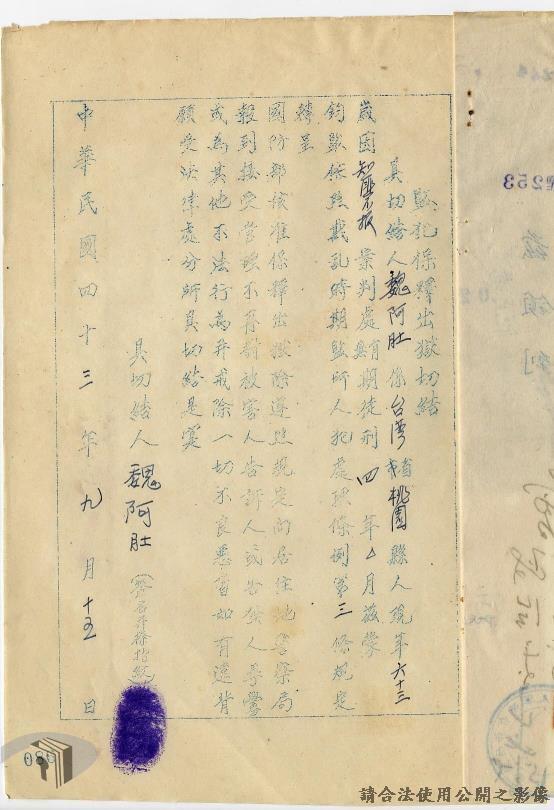 監犯保釋出獄切結
具切結人魏阿肚係台灣省桃園縣人現年六十三
歲因知匪不報案判處有期徒刑四年△月茲蒙
鈞監依照戡亂時期監所人犯處理條例第三條規定
轉呈
國防部核准保釋出獄除遵照規定向居住地警察局
報到接受管理不再對被害人告訴人或告發人尋釁
或為其他不法行為并戒除一切不良惡習如有違背
願受法律處分所具切結是實
具切結人 魏阿肚(簽名并捺指紋)
中華民國四十三年九月十五日
080
253
請合法使用公開之影像